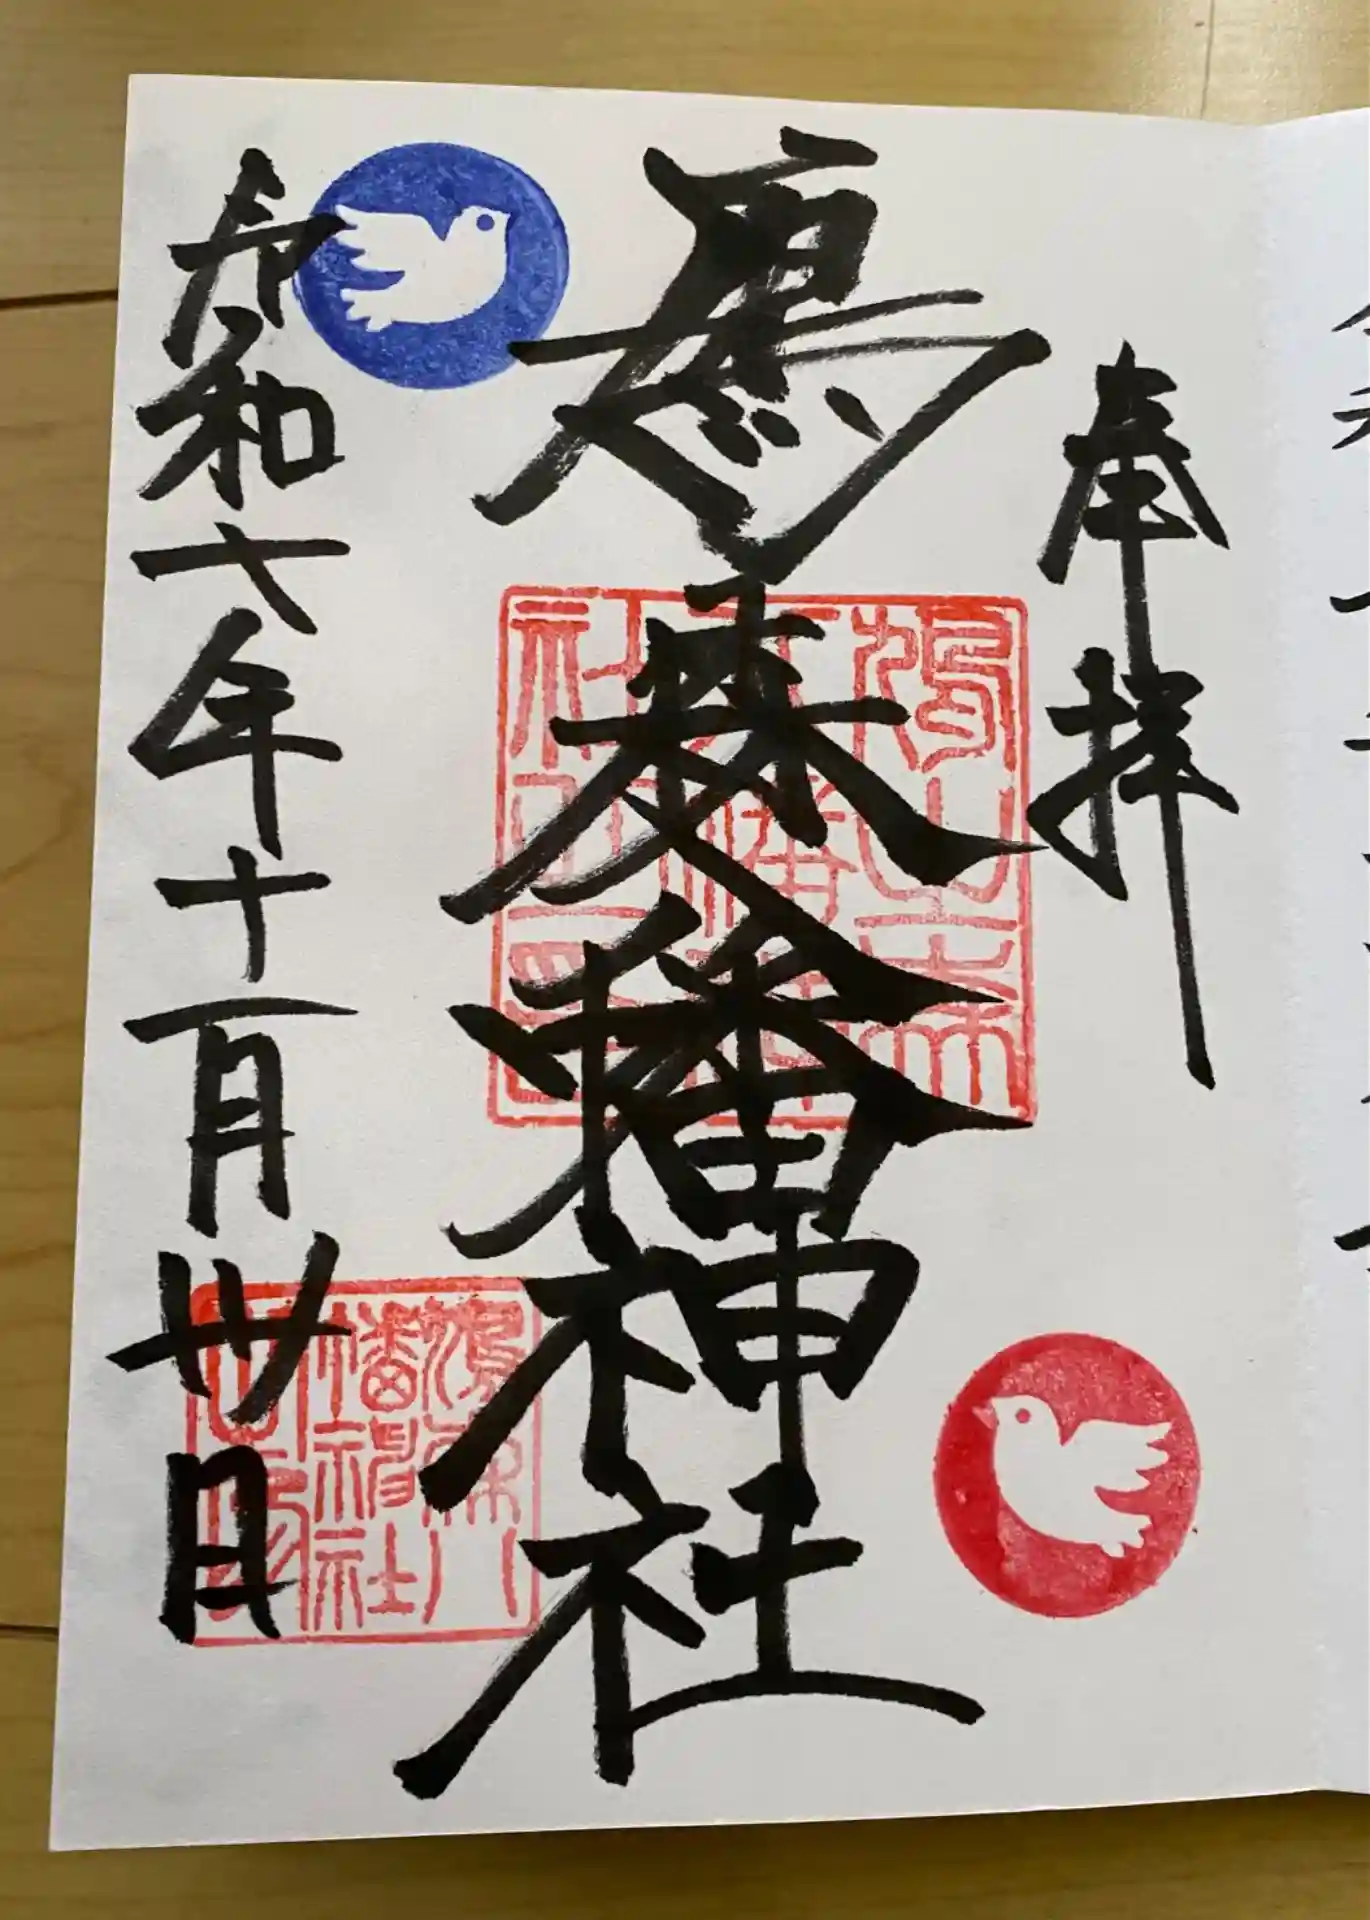 奉拝
鳩森八幡神社
令和六年十一月卅日
鳩之森
八幡神
社之印
鳩森八
幡神社